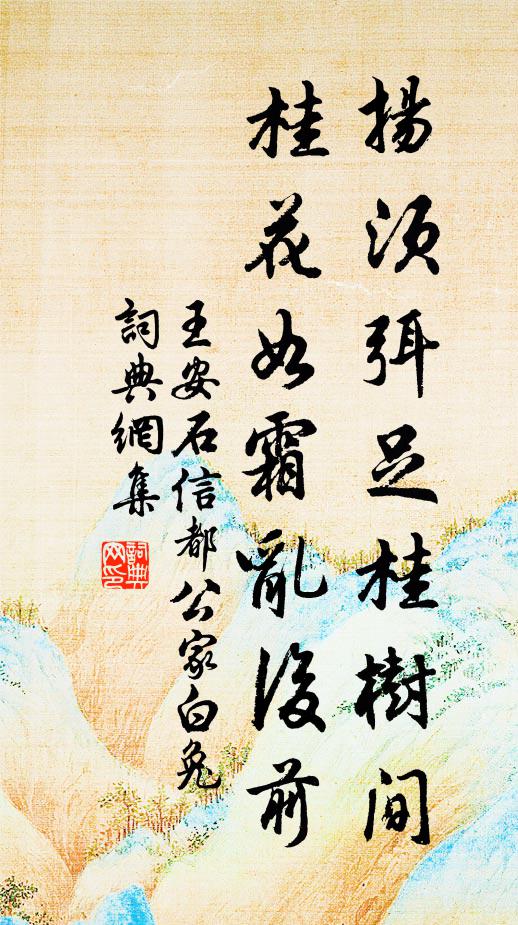 揚須弭足桂樹間
桂花如霜亂後前
王安石信都公家白兔
詞典網集
詞典网印